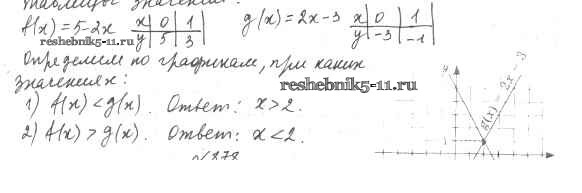 таблицы значений:
f(x)=5-2x x 0 1 g(x)=2x-3 x 0 1
y 5 3 y -3 -1
reshebnik5-11.ru
Определим по графикам, при каких
значениях:
reshebnik5-11.ru
1) f(x)<g(x). Ответ: x>2.
2) f(x)>g(x). Ответ: x<2.
y
g(x)=2x-3
1